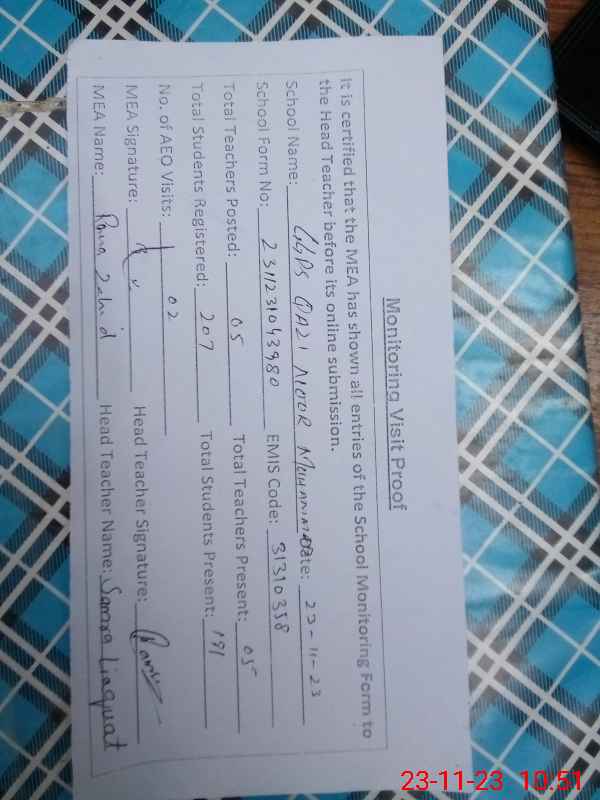 Monitoring Visit Proof
It is certified that the MEA has shown all entries of the School Monitoring Form to
the Head Teacher before its online submission.
School Name: GGPS QAZI NOOR MUHAMMAD Date: 23-11-23
School Form No: 2311231043980 EMIS Code: 31310338
Total Teachers Posted: 05 Total Teachers Present: 05
Total Students Registered: 207 Total Students Present: 191
No. of AEO Visits: 02
MEA Signature: Head Teacher Signature:
MEA Name: Rana Zahid Head Teacher Name: Samra Liaquat
23-11-23 10:51